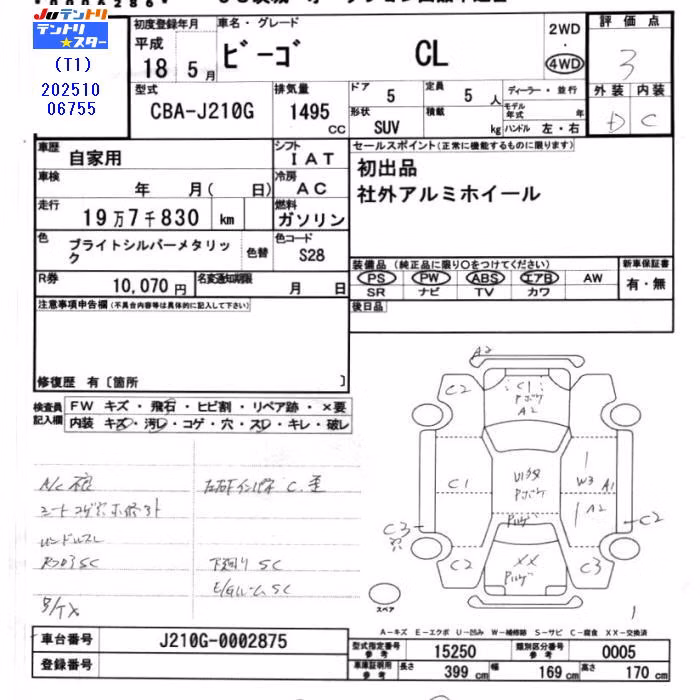 JUテントリ
テントリ★スター
(T1)
202510
06755
初度登録年月
平成
18 5月
車名・グレード
ビーゴ CL
2WD
・
4WD
評価点
3
型式
CBA-J210G
排気量
1495
CC
ドア
5
定員
5 人
形状
SUV
積載
kg
ディーラー・並行
モデル年式 年
ハンドル 左・右
外装 内装
D C
車歴
自家用
シフト
IAT
車検
年 月( 日)
冷房
AC
走行
19万7千830 km
燃料
ガソリン
色
ブライトシルバーメタリック
色替
色コード
S28
R券
10,070円
名変通知期限
月 日
セールスポイント(正常に機能するものに限ります)
初出品
社外アルミホイール
装備品(純正品に限り○をつけてください)
PS PW ABS エアB AW
SR ナビ TV カワ
新車保証書
有・無
後日品
注意事項申告欄(不具合内容等は具体的に記入して下さい)
修復歴 有〔箇所 〕
検査員記入欄
FW キズ・飛石・ヒビ割・リペア跡・×要
内装 キズ・汚レ・コゲ・穴・スレ・キレ・破レ
ハンドルスレ
下廻りSC
E/GルームSC
A2
C2
C1
A2
C2
C1
W3
A1
A2
C3
穴
C2
C2
XX
C3
スペア
1
A-キズ E-エクボ U-凹み W-補修跡 S-サビ C-腐食 XX-交換済
車台番号
J210G-0002875
登録番号
型式指定番号
参考
15250
類別区分番号
参考
0005
車庫証明用
参考
長さ
399 cm
幅
169 cm
高さ
170 cm